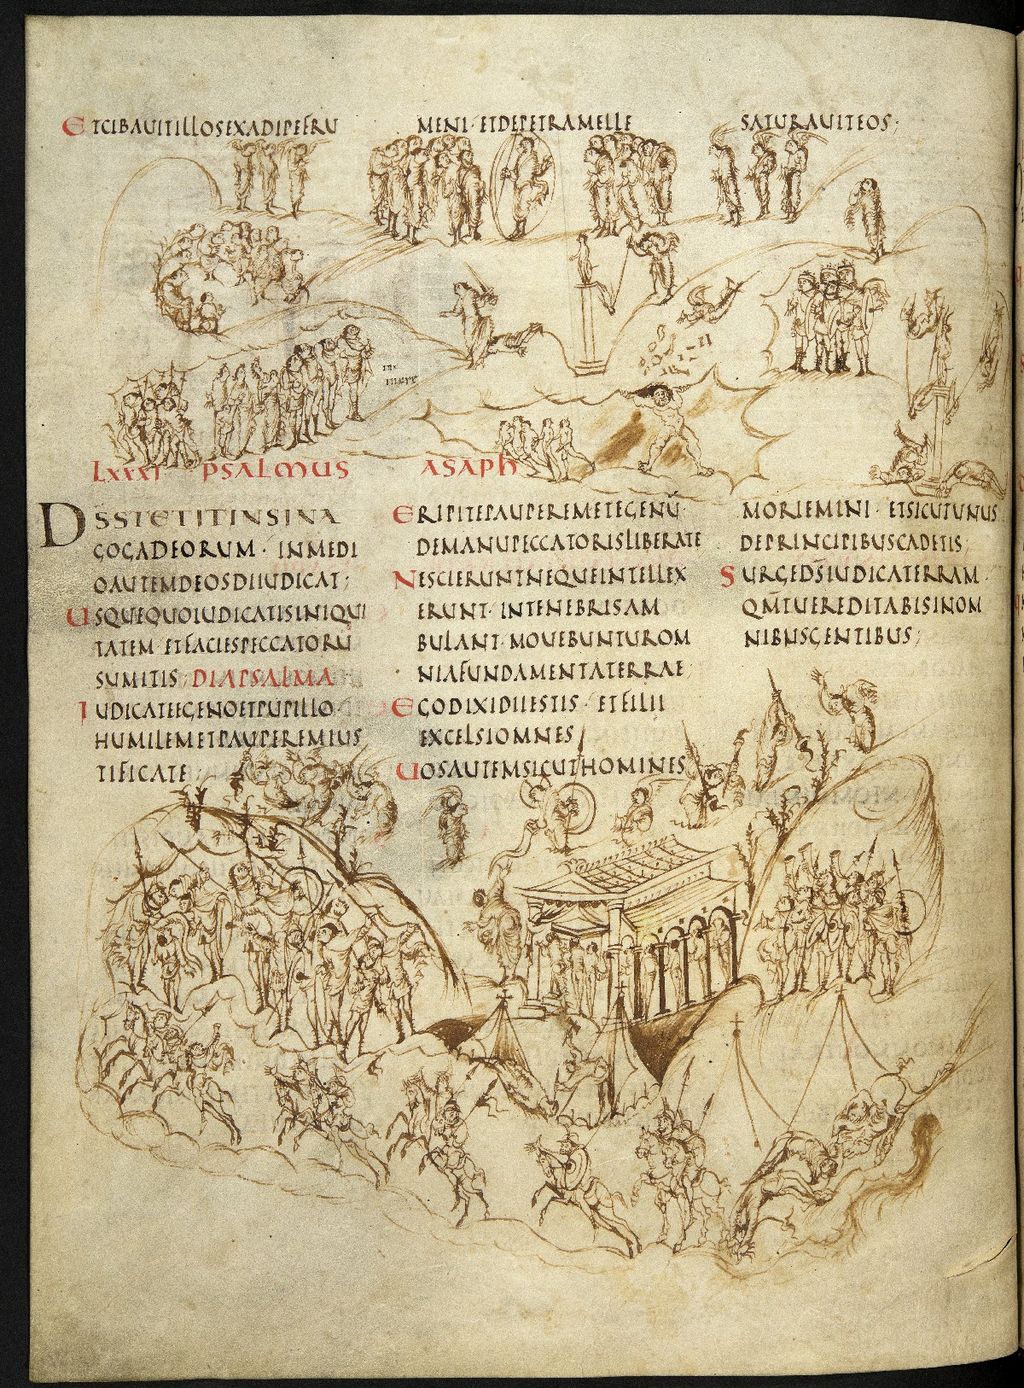 ETCIBAUITILLOSEXADIPEFRU
MENI· ETDEPETRAMELLE
SATURAUITEOS·
LXXXI PSALMUS ASAPH
DSSTETITINSINA
GOGADEORUM· INMEDI
OAUTEMDEOSDIIUDICAT;
USQUEQUOIUDICATISINIQUI
TATEM ETFACIESPECCATORŪ
SUMITIS; DIAPSALMA
IUDICATEEGENOETPUPILLO
HUMILEMETPAUPEREMIUS
TIFICATE;
ERIPITEPAUPEREMETEGENŪ·
DEMANUPECCATORISLIBERATE
NESCIERUNTNEQUEINTELLEX
ERUNT· INTENEBRISAM
BULANT· MOUEBUNTUROM
NIAFUNDAMENTATERRAE;
EGODIXIDIIESTIS· ETFILII
EXCELSIOMNES;
UOSAUTEMSICUTHOMINES
MORIEMINI· ETSICUTUNUS
DEPRINCIPIBUSCADETIS;
SURGED̄SIUDICATERRAM·
QM̄TUEREDITABISINOM
NIBUSGENTIBUS;